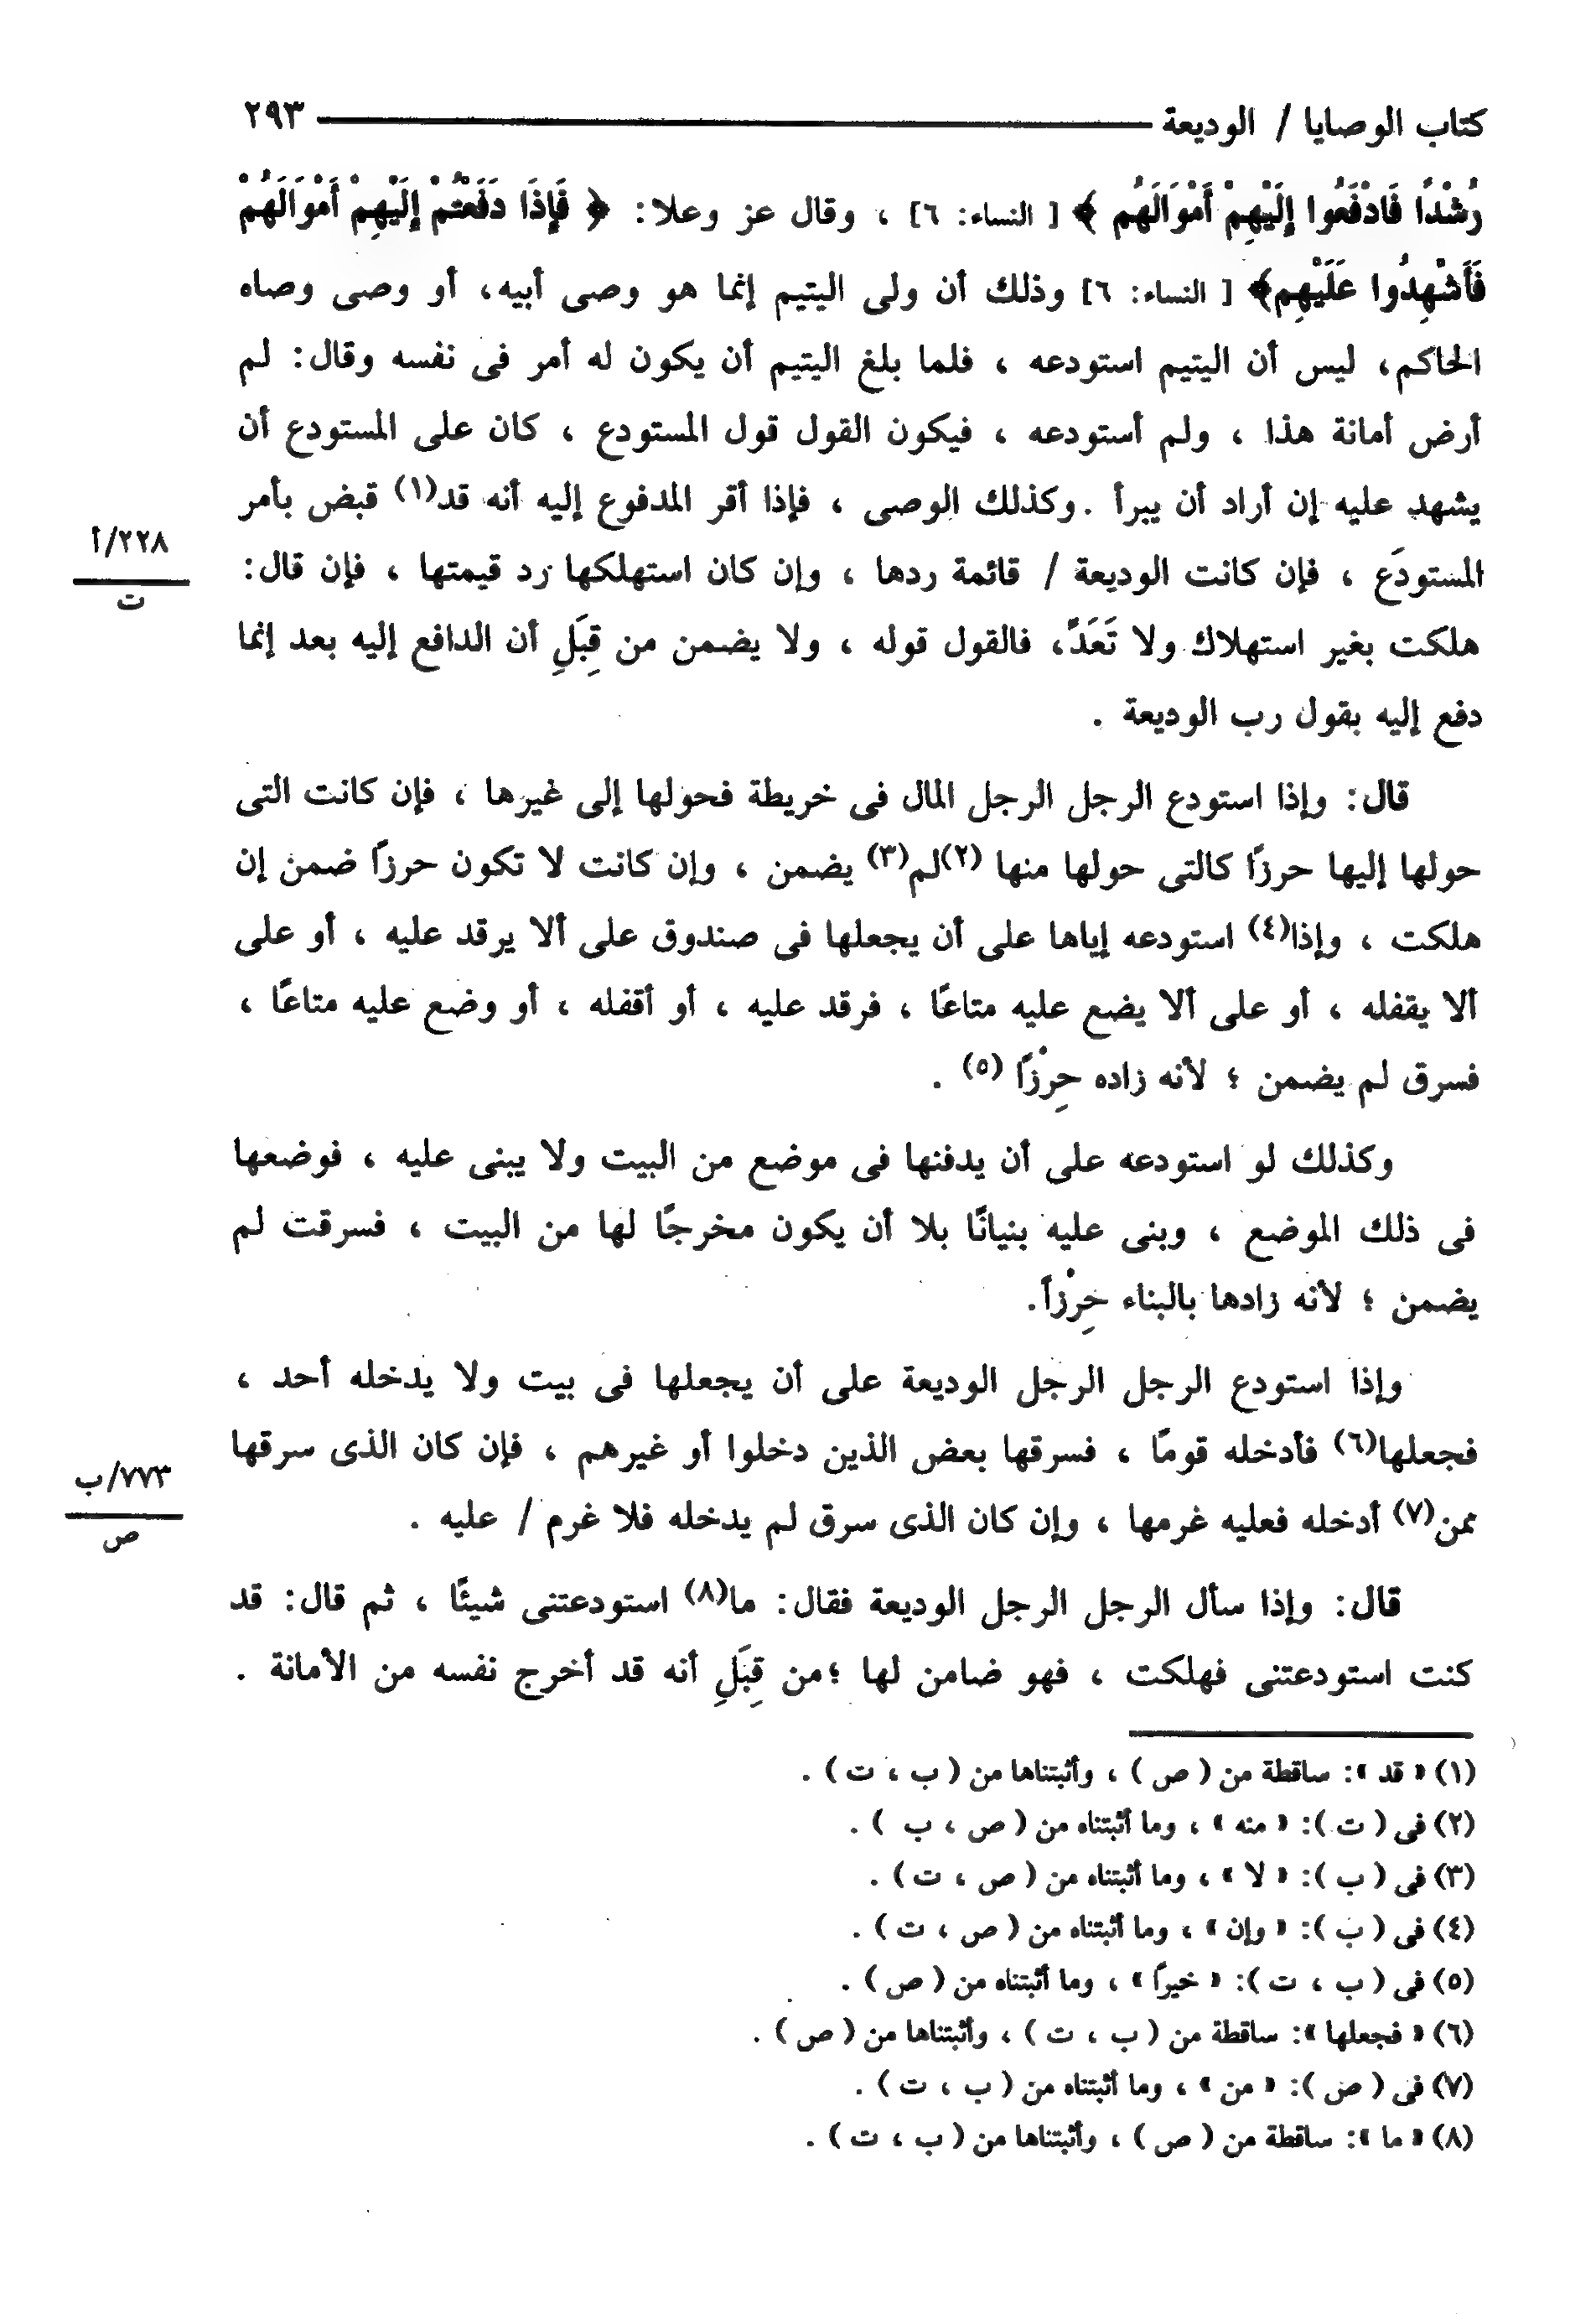 كتاب الوصايا / الوديعة ٢٩٣
رُشْدًا فَادْفَعُوا إِلَيْهِمْ أَمْوَالَهُم ﴾ [ النساء: ٦] ، وقال عز وعلا: ﴿ فَإِذَا دَفَعْتُمْ إِلَيْهِمْ أَمْوَالَهُمْ
فَأَشْهِدُوا عَلَيْهِم﴾ [ النساء: ٦] وذلك أن ولى اليتيم إنما هو وصى أبيه، أو وصى وصاه
الحاكم، ليس أن اليتيم استودعه ، فلما بلغ اليتيم أن يكون له أمر فى نفسه وقال: لم
أرض أمانة هذا ، ولم أستودعه ، فيكون القول قول المستودع ، كان على المستودع أن
يشهد عليه إن أراد أن يبرأ . وكذلك الوصى ، فإذا أقر المدفوع إليه أنه قد(١) قبض بأمر
المستودَع ، فإن كانت الوديعة / قائمة ردها ، وإن كان استهلكها رد قيمتها ، فإن قال:
٢٢٨/أ
ت
هلكت بغير استهلاك ولا تَعَدٍّ، فالقول قوله ، ولا يضمن من قِبَلِ أن الدافع إليه بعد إنما
دفع إليه بقول رب الوديعة .
قال: وإذا استودع الرجل الرجل المال فى خريطة فحولها إلى غيرها ، فإن كانت التى
حولها إليها حرزًا كالتى حولها منها (٢)لم(٣) يضمن ، وإن كانت لا تكون حرزًا ضمن إن
هلكت ، وإذا(٤) استودعه إياها على أن يجعلها فى صندوق على ألا يرقد عليه ، أو على
ألا يقفله ، أو على ألا يضع عليه متاعًا ، فرقد عليه ، أو أقفله ، أو وضع عليه متاعًا ،
فسرق لم يضمن ؛ لأنه زاده حِرْزًا (٥) .
وكذلك لو استودعه على أن يدفنها فى موضع من البيت ولا يبنى عليه ، فوضعها
فى ذلك الموضع ، وبنى عليه بنيانًا بلا أن يكون مخرجًا لها من البيت ، فسرقت لم
يضمن ؛ لأنه زادها بالبناء حِرْزاً.
وإذا استودع الرجل الرجل الوديعة على أن يجعلها فى بيت ولا يدخله أحد ،
فجعلها(٦) فأدخله قومًا ، فسرقها بعض الذين دخلوا أو غيرهم ، فإن كان الذى سرقها
ممن(٧) أدخله فعليه غرمها ، وإن كان الذى سرق لم يدخله فلا غرم / عليه .
٧٧٣/ب
ص
قال: وإذا سأل الرجل الرجل الوديعة فقال: ما(٨) استودعتنى شيئًا ، ثم قال: قد
كنت استودعتنى فهلكت ، فهو ضامن لها ؛من قِبَلِ أنه قد أخرج نفسه من الأمانة .
(١) « قد »: ساقطة من ( ص ) ، وأثبتناها من ( ب ، ت ) .
(٢) فى ( ت ): « منه » ، وما أثبتناه من ( ص ، ب ) .
(٣) فى ( ب ): « لا » ، وما أثبتناه من ( ص ، ت ) .
(٤) فى ( ب ): « وإن » ، وما أثبتناه من ( ص ، ت ) .
(٥) فى ( ب ، ت ): « خيراً » ، وما أثبتناه من ( ص ) .
(٦) « فجعلها »: ساقطة من ( ب ، ت ) ، وأثبتناها من ( ص ) .
(٧) فى ( ص ): « من » ، وما أثبتناه من ( ب ، ت ) .
(٨) « ما »: ساقطة من ( ص ) ، وأثبتناها من ( ب ، ت ) .